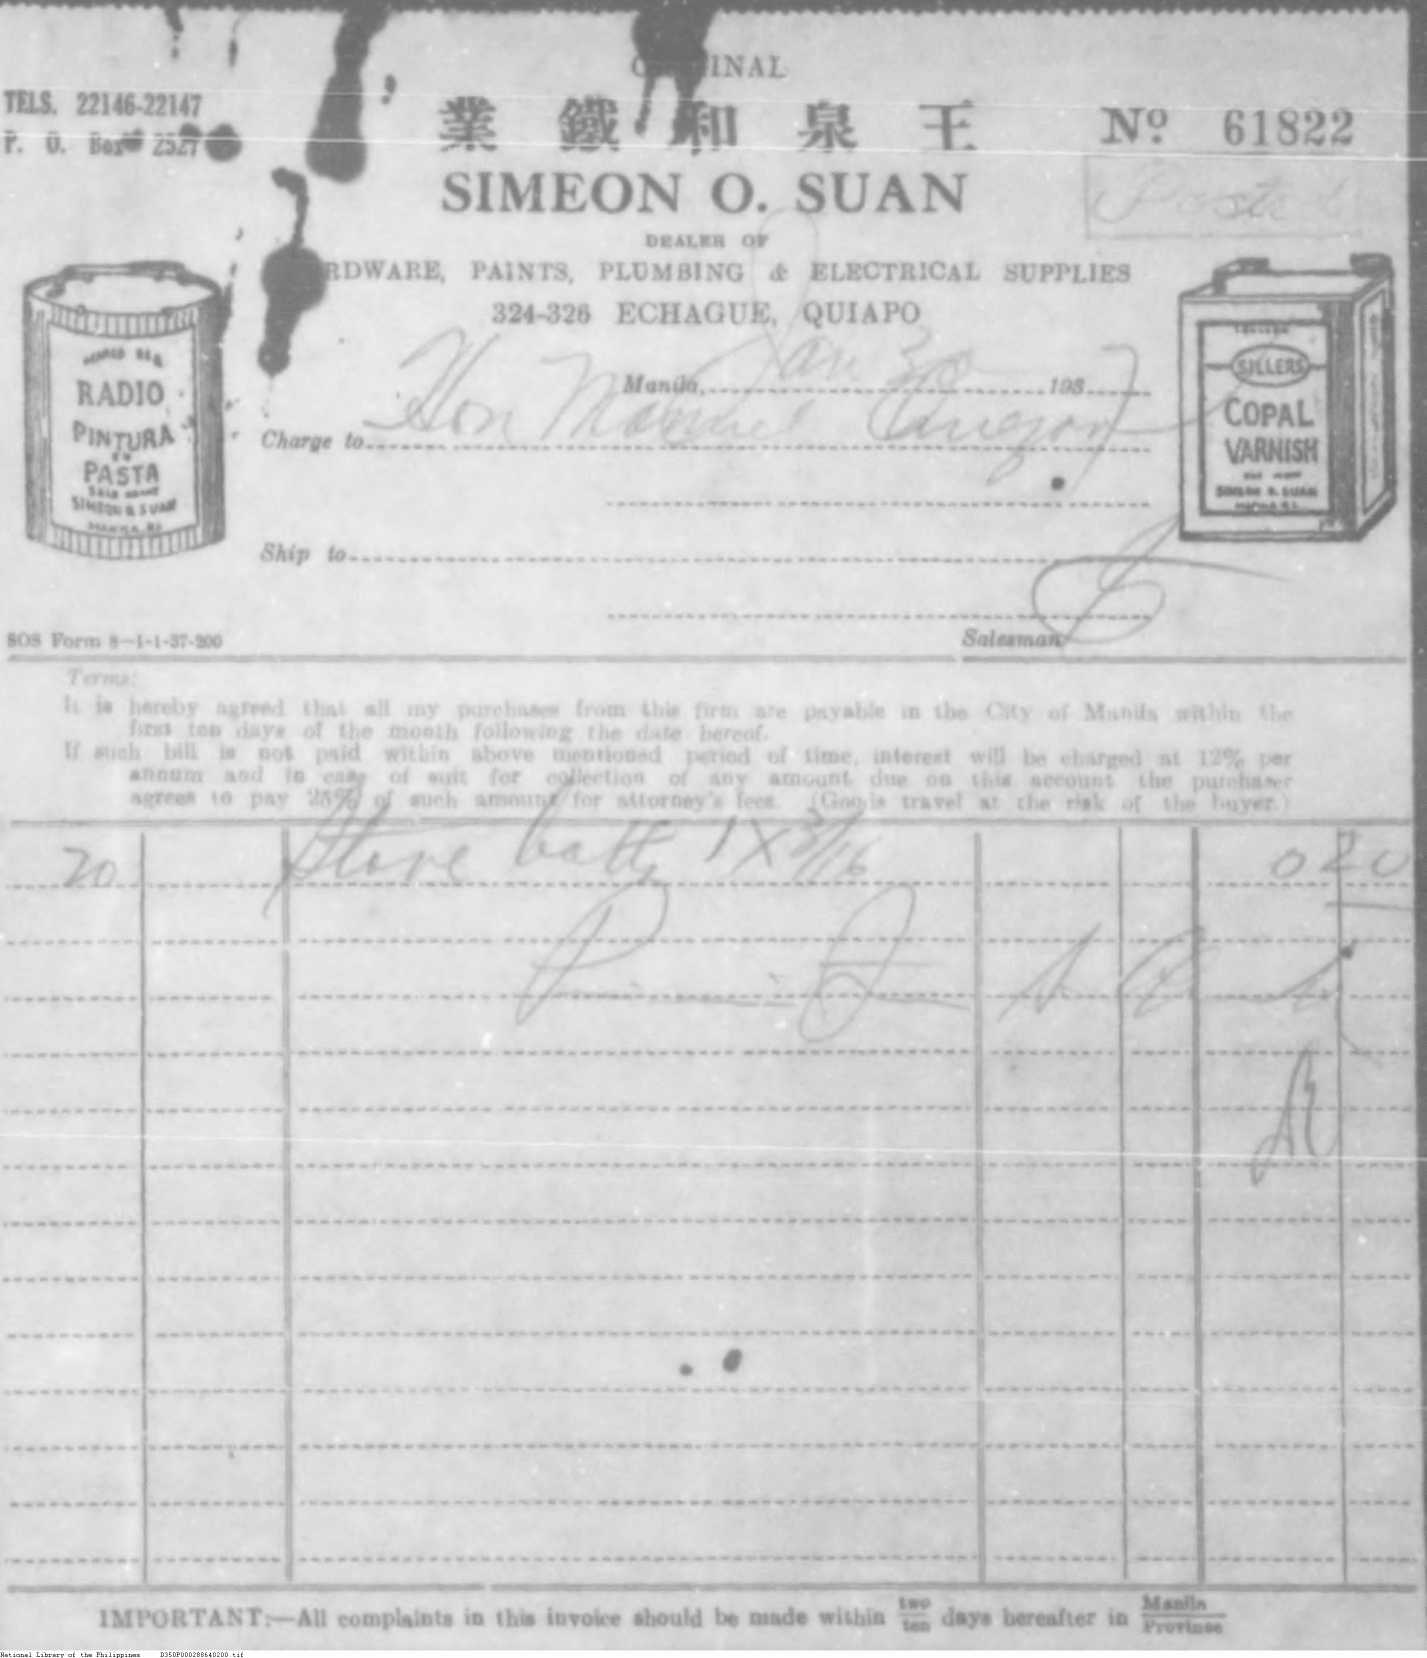 ORIGINAL
TELS. 22146-22147
P. O. Box 2527
業鐵和泉王
Nº 61822
SIMEON O. SUAN
Posted
DEALER OF
HARDWARE, PAINTS, PLUMBING & ELECTRICAL SUPPLIES
324-326 ECHAGUE, QUIAPO
RADIO
PINTURA
EN
PASTA
SIMEON O. SUAN
MANILA, P.I.
SILLERS
COPAL
VARNISH
SIMEON O. SUAN
MANILA P.I.
Manila, Jan 30 1937
Charge to Hon Manuel Quezon
Ship to
SOS Form 8-1-1-37-200
Salesman
Terms:
It is hereby agreed that all my purchases from this firm are payable in the City of Manila within the
first ten days of the month following the date hereof.
If such bill is not paid within above mentioned period of time, interest will be charged at 12% per
annum and in case of suit for collection of any amount due on this account the purchaser
agrees to pay 25% of such amount for attorney's fees. (Goods travel at the risk of the buyer.)
20 Stove 1 X 3/16 0 20
IMPORTANT:—All complaints in this invoice should be made within two/ten days hereafter in Manila/Province
National Library of the Philippines D350P000288640200.tif